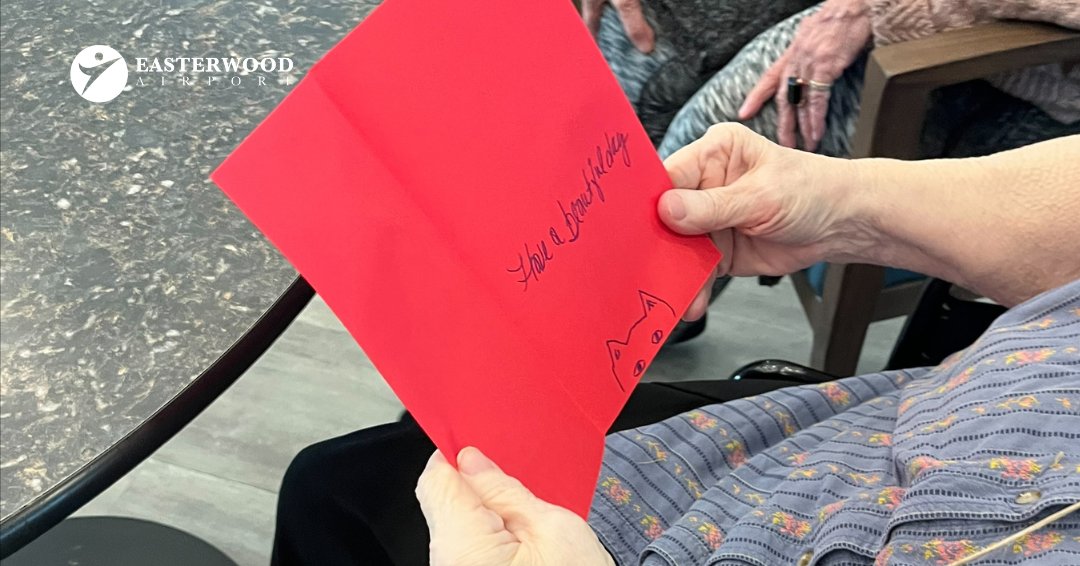 EASTERWOOD
AIRPORT
Have a beautiful day